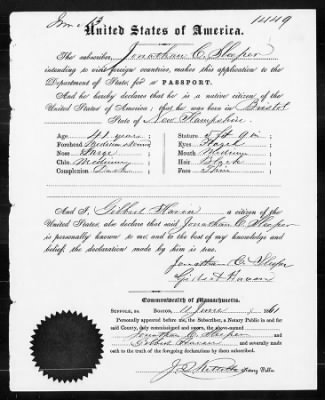 June 13 1449
United States of America.
The subscriber, Jonathan C. Sleeper
intending to visit foreign countries, makes this application to the
Department of State, for a PASSPORT.
And he hereby declares that he is a native citizen of the
United States of America; that he was born in Bristol
State of New Hampshire.
Age 41 years Stature 5 ft 9 in
Forehead Medium Eyes Hazel
Nose Large Mouth Medium
Chin Medium Hair Black
Complexion Dark Face Thin
And I, Gilbert Haven a citizen of the
United States, also declare that said Jonathan C. Sleeper
is personally known to me and to the best of my knowledge and
belief, the declaration made by him is true.
Jonathan C. Sleeper
Gilbert Haven
Commonwealth of Massachusetts.
SUFFOLK, SS. BOSTON, 11 June 1861
Personally appeared before me, the Subscriber, a Notary Public in and for
said County, duly commissioned and sworn, the above-named
Jonathan C. Sleeper and
Gilbert Haven and severally made
oath to the truth of the foregoing declarations by them subscribed.
Notary Public